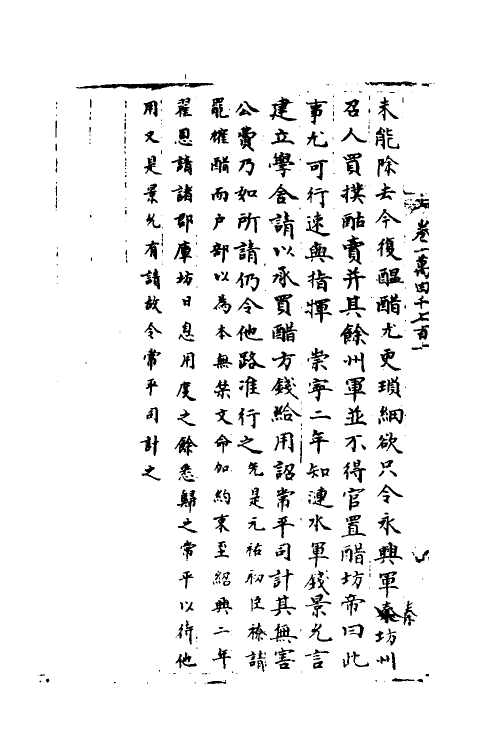 卷一萬四千七百一
未能除去今復醞醋尤更瑣細欲只令永興軍秦坊州
秦
召人買撲酤賣并其餘州軍並不得官置醋坊帝曰此
事尤可行速與指揮　崇寧二年知漣水軍錢景允言
建立學舍請以承買醋方錢給用詔常平司計其無害
公費乃如所請仍令他路准行之先是元祐初臣僚請
罷榷醋而戶部以為本無禁文命加約束至紹興二年
翟思請諸郡庫坊日息用度之餘悉歸之常平以待他
用又是景允有請故令常平司計之